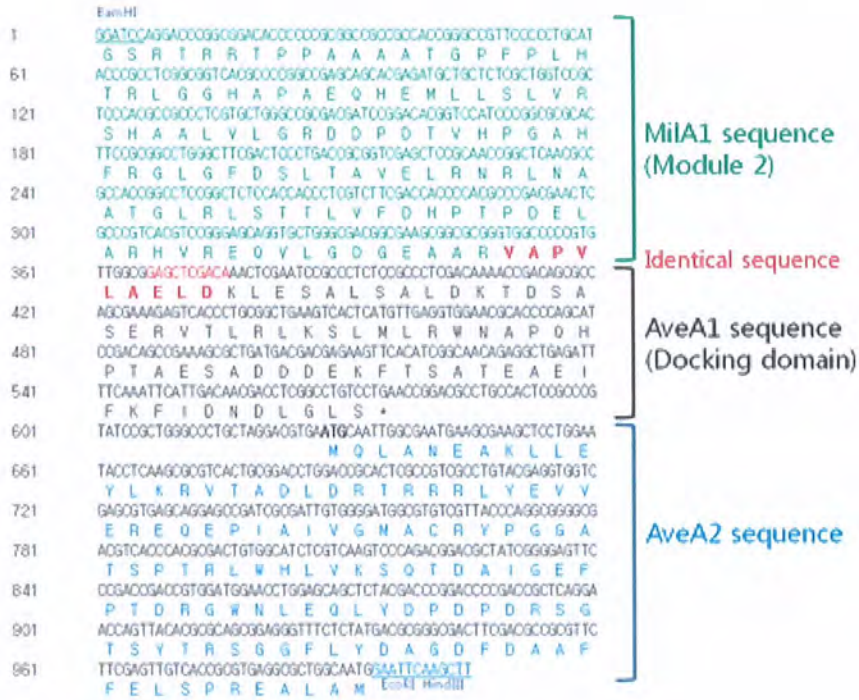 BamHI
1 GGATCCAGGACCCGGCGGACACCCCCCGCGGCCGCCGCCACCGGGCCGTTCCCCCTGCAT
G S R T R R T P P A A A A T G P F P L H
61 ACCCGCCTCGGCGGTCACGCCCCGGCCGAGCAGCACGAGATGCTGCTCTCGCTGGTCCGC
T R L G G H A P A E Q H E M L L S L V R
121 TCCCACGCCGCCCTCGTGCTGGGCCGCGACGATCCGGACACGGTCCATCCCGGCGCGCAC
S H A A L V L G R D D P D T V H P G A H
MilA1 sequence
(Module 2)
181 TTCCGCGGCCTGGGCTTCGACTCCCTGACCGCGGTCGAGCTCCGCAACCGGCTCAACGCC
F R G L G F D S L T A V E L R N R L N A
241 GCCACCGGCCTCCGGCTCTCCACCACCCTCGTCTTCGACCACCCCACGCCCGACGAACTC
A T G L R L S T T L V F D H P T P D E L
301 GCCCGTCACGTCCGGGAGCAGGTGCTGGGCGACGGCGAAGCGGCGCGGGTGGCCCCCGTG
A R H V R E Q V L G D G E A A R V A P V
Identical sequence
361 TTGGCGGAGCTCGACAAACTCGAATCCGCCCTCTCCGCCCTCGACAAAACCGACAGCGCC
L A E L D K L E S A L S A L D K T D S A
421 AGCGAAAGAGTCACCCTGCGGCTGAAGTCACTCATGTTGAGGTGGAACGCACCCCAGCAT
S E R V T L R L K S L M L R W N A P Q H
AveA1 sequence
(Docking domain)
481 CCGACAGCCGAAAGCGCTGATGACGACGAGAAGTTCACATCGGCAACAGAGGCTGAGATT
P T A E S A D D D E K F T S A T E A E I
541 TTCAAATTCATTGACAACGACCTCGGCCTGTCCTGAACCGGACGCCTGCCACTCCGCCCG
F K F I D N D L G L S *
601 TATCCGCTGGGCCCTGCTAGGACGTGAATGCAATTGGCGAATGAAGCGAAGCTCCTGGAA
M Q L A N E A K L L E
661 TACCTCAAGCGCGTCACTGCGGACCTGGACCGCACTCGCCGTCGCCTGTACGAGGTGGTC
Y L K R V T A D L D R T R R R L Y E V V
721 GAGCGTGAGCAGGAGCCGATCGCGATTGTGGGGATGGCGTGTCGTTACCCAGGCGGGGCG
E R E Q E P I A I V G M A C R Y P G G A
AveA2 sequence
781 ACGTCACCCACGCGACTGTGGCATCTCGTCAAGTCCCAGACGGACGCTATCGGGGAGTTC
T S P T R L W H L V K S Q T D A I G E F
841 CCGACCGACCGTGGATGGAACCTGGAGCAGCTCTACGACCCGGACCCCGACCGCTCAGGA
P T D R G W N L E Q L Y D P D P D R S G
901 ACCAGTTACACGCGCAGCGGAGGGTTTCTCTATGACGCGGGCGACTTCGACGCCGCGTTC
T S Y T R S G G F L Y D A G D F D A A F
961 TTCGAGTTGTCACCGCGTGAGGCGCTGGCAATGGAATTCAAGCTT
F E L S P R E A L A M EcoRI HindIII